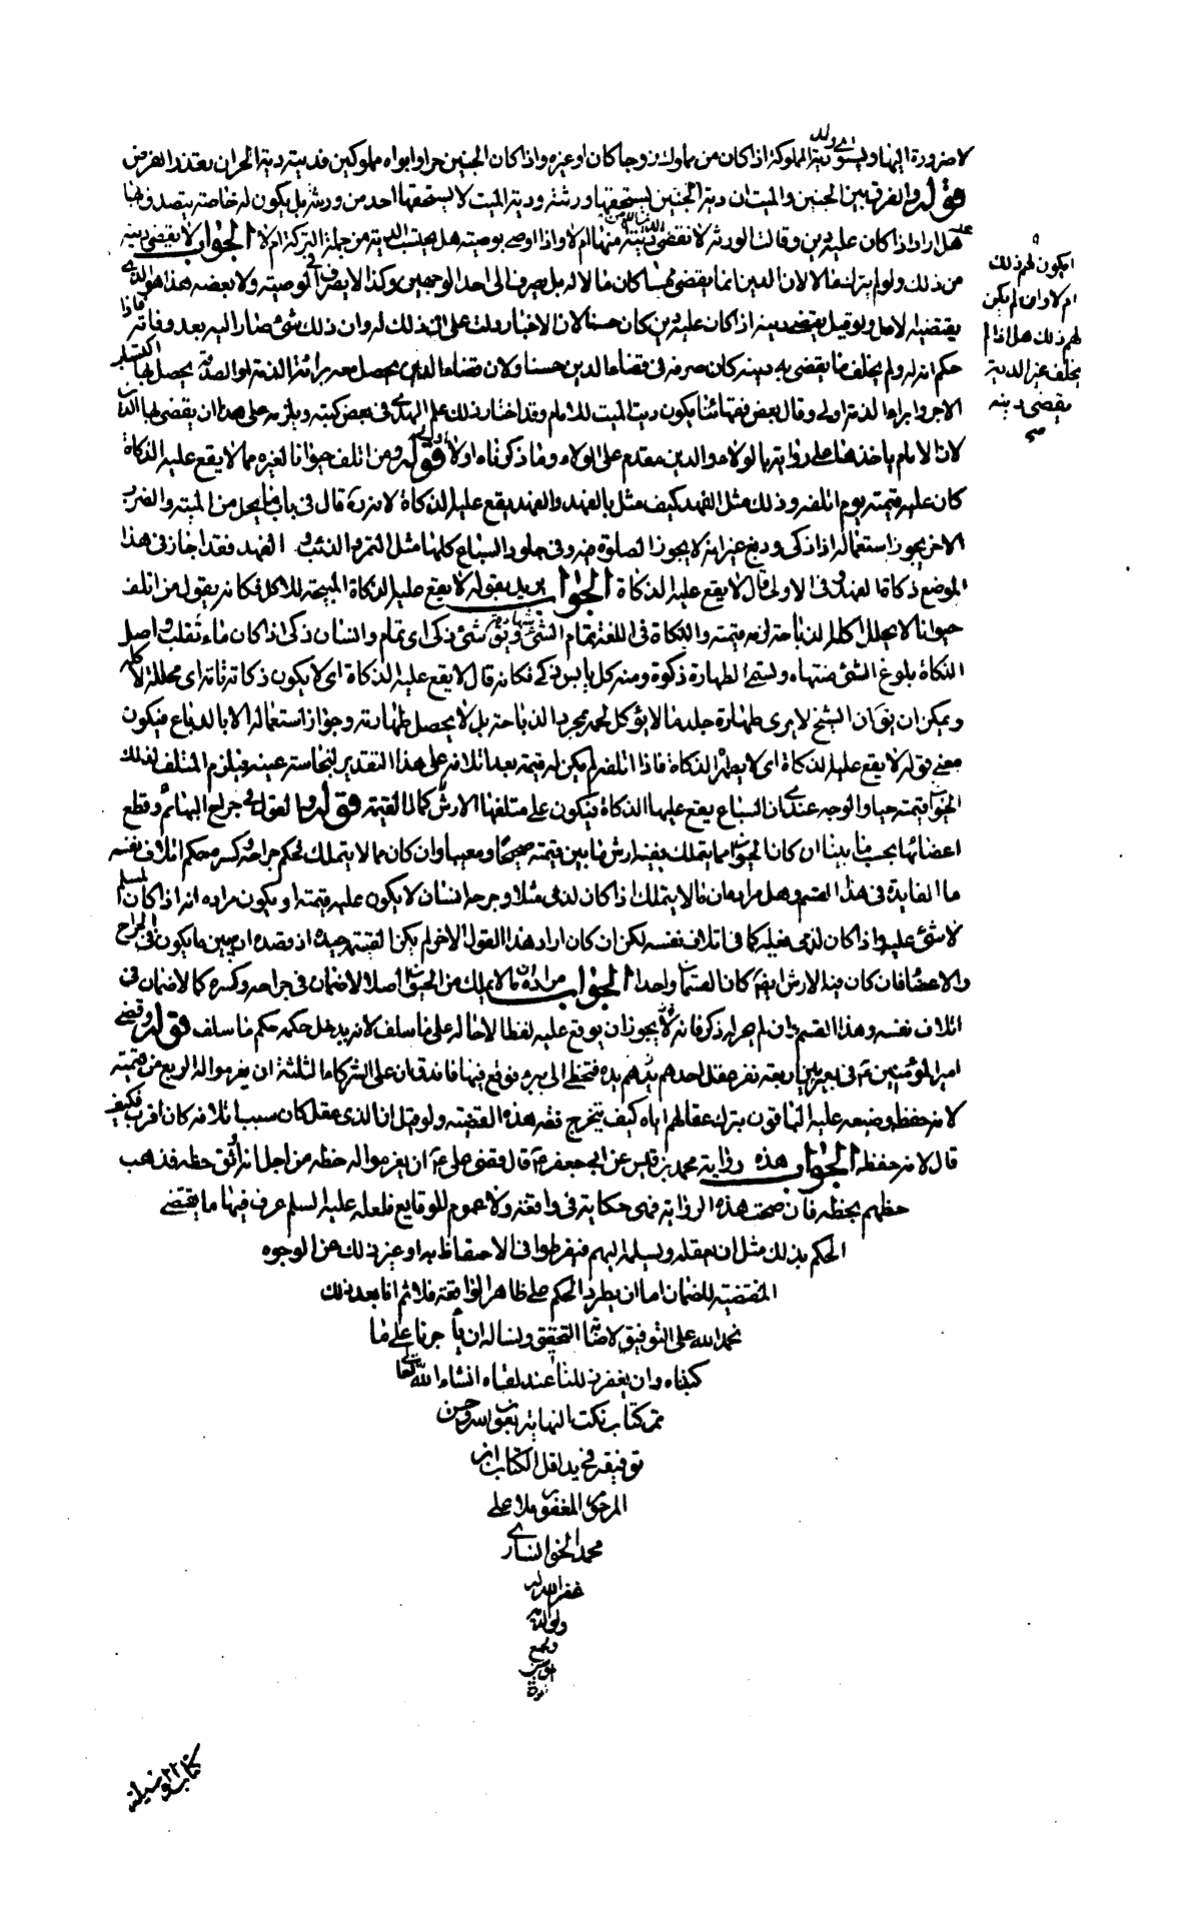 لا ضرورة اليها ودية المملوكة اذا كان من مملوك زوجا كان او غيره واذا كان الجنين حرا وابواه مملوكين فديته دية الحران بعتذر الفرض
قوله والفرق بين الجنين والميت ان دية الجنين يستحقها ورثته ودية الميت لا يستحقها احد من ورثته بل يكون له خاصة يتصدق بها
عنه هل اراد اذا كان عليه دين وقالت الورثة لا نقضي دينه منها ام لا واذا اوصى بوصية هل يحتسب الدية من جملة التركة ام لا الجواب لا يقضى دينه
من ذلك ولو لم يترك مالا لان الدين انما يقضى مما كان مالا له بل يصرف الى احدى الوجهين وكذا لا يصرف في الوصية ولا بعضه هذا هو الذي
يقتضيه الاصل ولو قيل يقضى دينه اذا كان عليه دين كان حسنا لان الاخبار دلت على ان ذلك له وان ذلك شئ صار اليه بعد وفاته فاذا
حكم انه له ولم يخلف ما يقضى به دينه كان صرفه في قضاء الدين حسنا ولان قضاء الدين يحصل معه براءة الذمة والصدقة يحصل بها اكتساب
الاجر وابراء الذمة اولى وقال بعض فقهائنا يكون دية الميت للامام وقد اختار ذلك علم الهدى في بعض كتبه ويلزمه على هذا ان يقضى بها الدين
لان الامام ياخذها على روايتهم بالولاء والدين مقدم على الولاء وما ذكرناه اولا اولى قوله ومن اتلف حيوانا لغيره مما لا يقع عليه الذكاة
كان عليه قيمته يوم اتلفه وذلك مثل الفهد كيف مثل بالفهد والفهد يقع عليه الذكاة لانه قال في باب ما يحل من الميتة والضرب
الاخر يجوز استعماله اذا ذكى ودبغ غير انه لا يجوز الصلوة فيه وهي جلود السباع كلها مثل النمر والذئب و الفهد فقد اجاز في هذا
الموضع ذكاة الفهد وفي الاول قال لا يقع عليه الذكاة الجواب يريد بقوله لا يقع عليه الذكاة المبيحة للاكل فكانه يقول من اتلف
حيوانا لا يحلل اكله الذباحة لزمه قيمته والذكاة في اللغة تمام الشئ ويق شئ ذكى اى تمام وانسان ذكى اذا كان ماء ثقلب اصل
الذكاة بلوغ الشئ منتهاه ويسمى الطهارة ذكوة ومنه كل يابس ذكي فكانه قال لا يقع عليه الذكاة اى لا يكون ذكاته ذكاة اى محللة لاكله
ويمكن ان يق ان الشيخ لا يرى طهارة جلد ما لا يؤكل لحمه بمجرد الذباحة بل لا يحصل طهارته وجواز استعماله الا بالدباغ فيكون
معنى قوله لا يقع عليه الذكاة اى لا يطهره الذكاة فاذا اتلفه لم يكن له قيمة بعد اتلافه على هذا التقدير لنجاسة عينه فيلزم المتلف لذلك
الحيوان قيمته حيا والوجه عندي ان السباع يقع عليها الذكاة فيكون على متلفها الارش كمال القيمة قوله والقول في جراح البهائم وقطع
اعضائها بحسب ما بيناه ان كان الحيوان مما يتملك ففيه ارش ما بين قيمته صحيحا ومعيبا وان كان مما لا يتملك فحكم جراحه وكسره حكم اتلاف نفسه
ما الفايدة في هذا القسم وهل مراده ان ما لا يتملك اذا كان لذمى مثلا وجرحه انسان لا يكون عليه قيمته او يكون مراده انه اذا كان لمسلم
لا شئ عليه واذا كان لذمى فعليه كما في اتلاف نفسه لكن ان كان اراد هذا القول الاخر لم يكن القسمة جيدة اذ قصده ان يبين ما يكون في الجراح
والاعضاء فان كان فيه الارش ايضا كان القسمان واحدا الجواب مراده ان ما لا يملك من الحيوان اصلا لا ضمان في جراحه وكسره كما لا ضمان في
اتلاف نفسه وهذا القسم وان لم يجر له ذكر فانه لا يجوز ان يوقع عليه لفظا لاحالة على ما سلف لانه يدخل حكمه حكم ما سلف قوله وقضى
امير المؤمنين ع في بعير بين اربعة نفر فعقل احدهم يده فتخطى الى بير فوقع فيها فاندق ان على الشركاء الثلثة ان يغرموا له الربع من قيمته
لانه حفظه وضيعه عليه الباقون بترك عقالهم اياه كيف يتخرج فقه هذه القضية ولو قيل ان الذى عقله كان سبب اتلافه كان اقرب فكيف
قال لانه حفظه الجواب هذه رواية محمد بن قيس عن ابي جعفر ع قال قضى على ع ان يغرموا له حظه من اجل انه اوثق حظه فذهب
حظهم بحظه فان صحت هذه الرواية فهى حكاية في واقعة ولا عموم للوقايع فلعله عليه السلم عرف فيها ما يقتضى
الحكم بذلك مثل ان يعقله ويسلمه اليهم ففرطوا فى الاحتفاظ به او غير ذلك من الوجوه
المقتضية للضمان اما ان يطرد الحكم على ظاهر الواقعة فلا ثم انا بعد ذلك
نحمد الله على التوفيق لاصابة التحقيق ونساله ان ياجرنا على ما
كتبناه وان يغفر زللنا عند لقاه انشاء الله تعالى
تم كتاب نكت النهاية بعون الله وحسن
توفيقه في يد اقل الكتاب ابن
المرحوم المغفور ملا على
محمد الخوانساري
غفر الله له
ولوالديه
ولجميع
المؤمنين
ايكون لهم ذلك
ام لا وان لم يكن
لهم ذلك هل اذا لم
يخلف غير الدية
يقضى دينه
صح